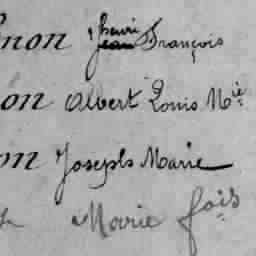 non henri jean François
on Albert Louis Mie
on Joseph Marie
Marie fois